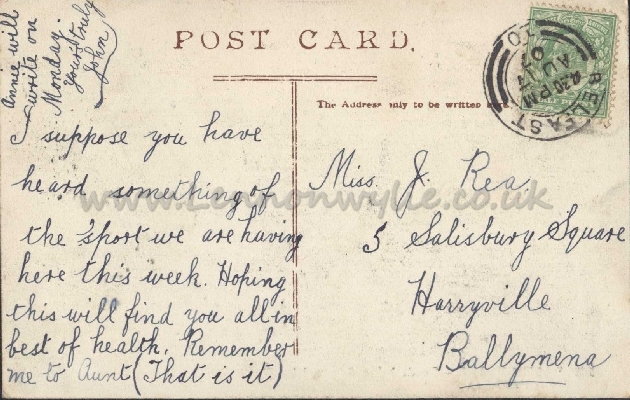 POST CARD.
The Address only to be written here
BELFAST
4.30 PM
AU 14
07
Annie will
write on
Monday.
Yours truly
John
I suppose you have
heard something of
the 'sport we are having
here this week. Hoping
this will find you all in
best of health. Remember
me to Aunt (That is it)
Miss. J. Rea.
5 Salisbury Square
Harryville
Ballymena
www.Lennonwylie.co.uk